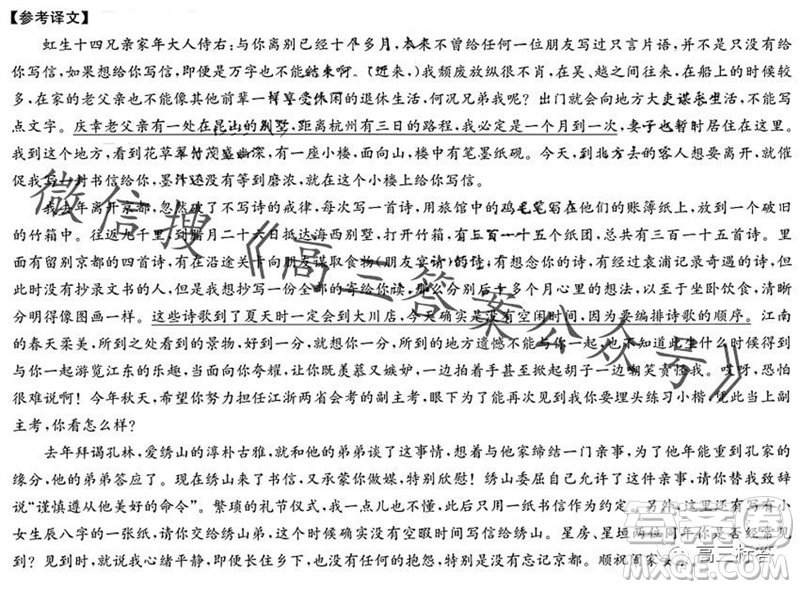 【参考译文】
虹生十四兄亲家年大人侍右:与你离别已经十个多月,本来不曾给任何一位朋友写过只言片语,并不只是没有给
你写信,如果想给你写信,即便是万字也不可能结束啊。(近来,)我颓废放纵很不肖,在吴、越之间往来,在船上的时候较
多,在家的老父亲也不能像其他前辈一样享受休闲的退休生活,何况兄弟我呢?出门就会向地方大吏谋求生活,不能写
点文字。庆幸老父亲有一处在昆山的别墅,距离杭州有三日的路程,我必定是一个月到一次,妻子也暂时居住在这里。
我到这个地方,看到花草翠竹茂盛幽深,有一座小楼,面对山,楼中有笔墨纸砚。今天,到北方去的客人想要离开,就催
促我写一封书信给你,墨汁还没有等到磨浓,就在这个小楼上给你写信。
我去年离开京都,忽然破了不写诗的戒律,每次写一首诗,用旅馆中的鸡毛笔写在他们的账簿纸上,放到一个破旧
的竹箱中。往返九千里,到腊月二十六日抵达海西别墅,打开竹箱,有三百一十五个纸团,总共有三百一十五首诗。里
面有留别京都的四首诗,有在沿途关卡向朋友谋取食物(朋友宴请)的诗,有想念你的诗,有经过袁浦记录奇遇的诗,但
此时没有抄录文书的人,但是我想抄写一份全部的寄给你读,那么分别后十多个月心里的想法,以至于坐卧饮食,清晰
分明得像图画一样。这些诗歌到了夏天时一定会到大川店,今天确实是没有空闲时间,因为要编排诗歌的顺序。江南
的春天柔美,所到之处看到的景物,好一分,情就会深一分,所到的地方遗憾不能与你在一起,也不知道此生什么时候能
与你一起游览江东的乐趣,当面向你夸耀,让你既羡慕又嫉妒,一边拍着手甚至掀起胡子一边嘲笑责怪我。哎呀,恐怕
很难说啊!今年秋天,希望你努力担任江浙两省会考的副主考,眼下为了能再次见到我你要埋头练习小楷,凭此当上副
主考,你看怎么样?
去年拜谒孔林,爱绣山的淳朴古雅,就同他的弟弟谈了这事情,想着与他家缔结一门亲事,为了他年能重到孔家的
缘分,他的弟弟答应了。现在绣山来了书信,又承蒙你做媒,特别欣慰!绣山委屈自己允许了这件亲事,请你替我致辞
说“谨慎遵从他美好的命令”。繁琐的礼节仪式,我一点儿也不懂,此后只用一纸书信作为约定。另外,这里还有写有小
女生辰八字的一张纸,请你交给绣山弟,这个时候确实没有空暇时间写信给绣山。星房、星垣两位同年你是否经常见
到?见到时,就说我心绪平静,即便长住乡下,也没有任何的抱怨,特别是没有忘记京都。顺祝阖家安
微信搜《高三答案公众号》
高三标答
MXQE.COM